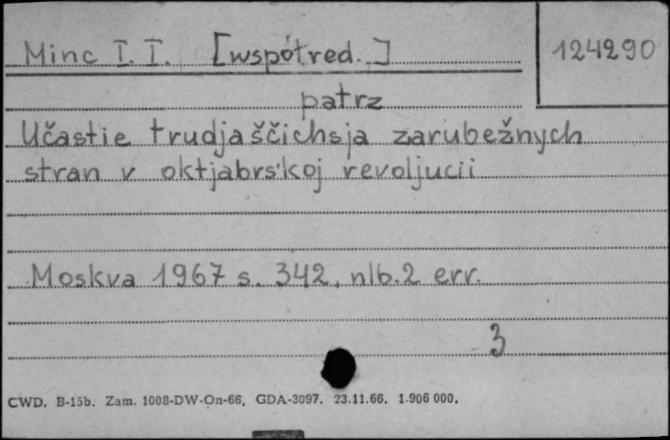 Minc I. I. [współred.]
124290
patrz
Učastie trudjaščichsja zarubežnych
stran v oktjabrs'koj revoljucii
Moskva 1967 s. 342, nlb. 2 err.
3
CWD. B-15b. Zam. 1008-DW-On-66, GDA-3097. 23.11.66. 1.906 000.